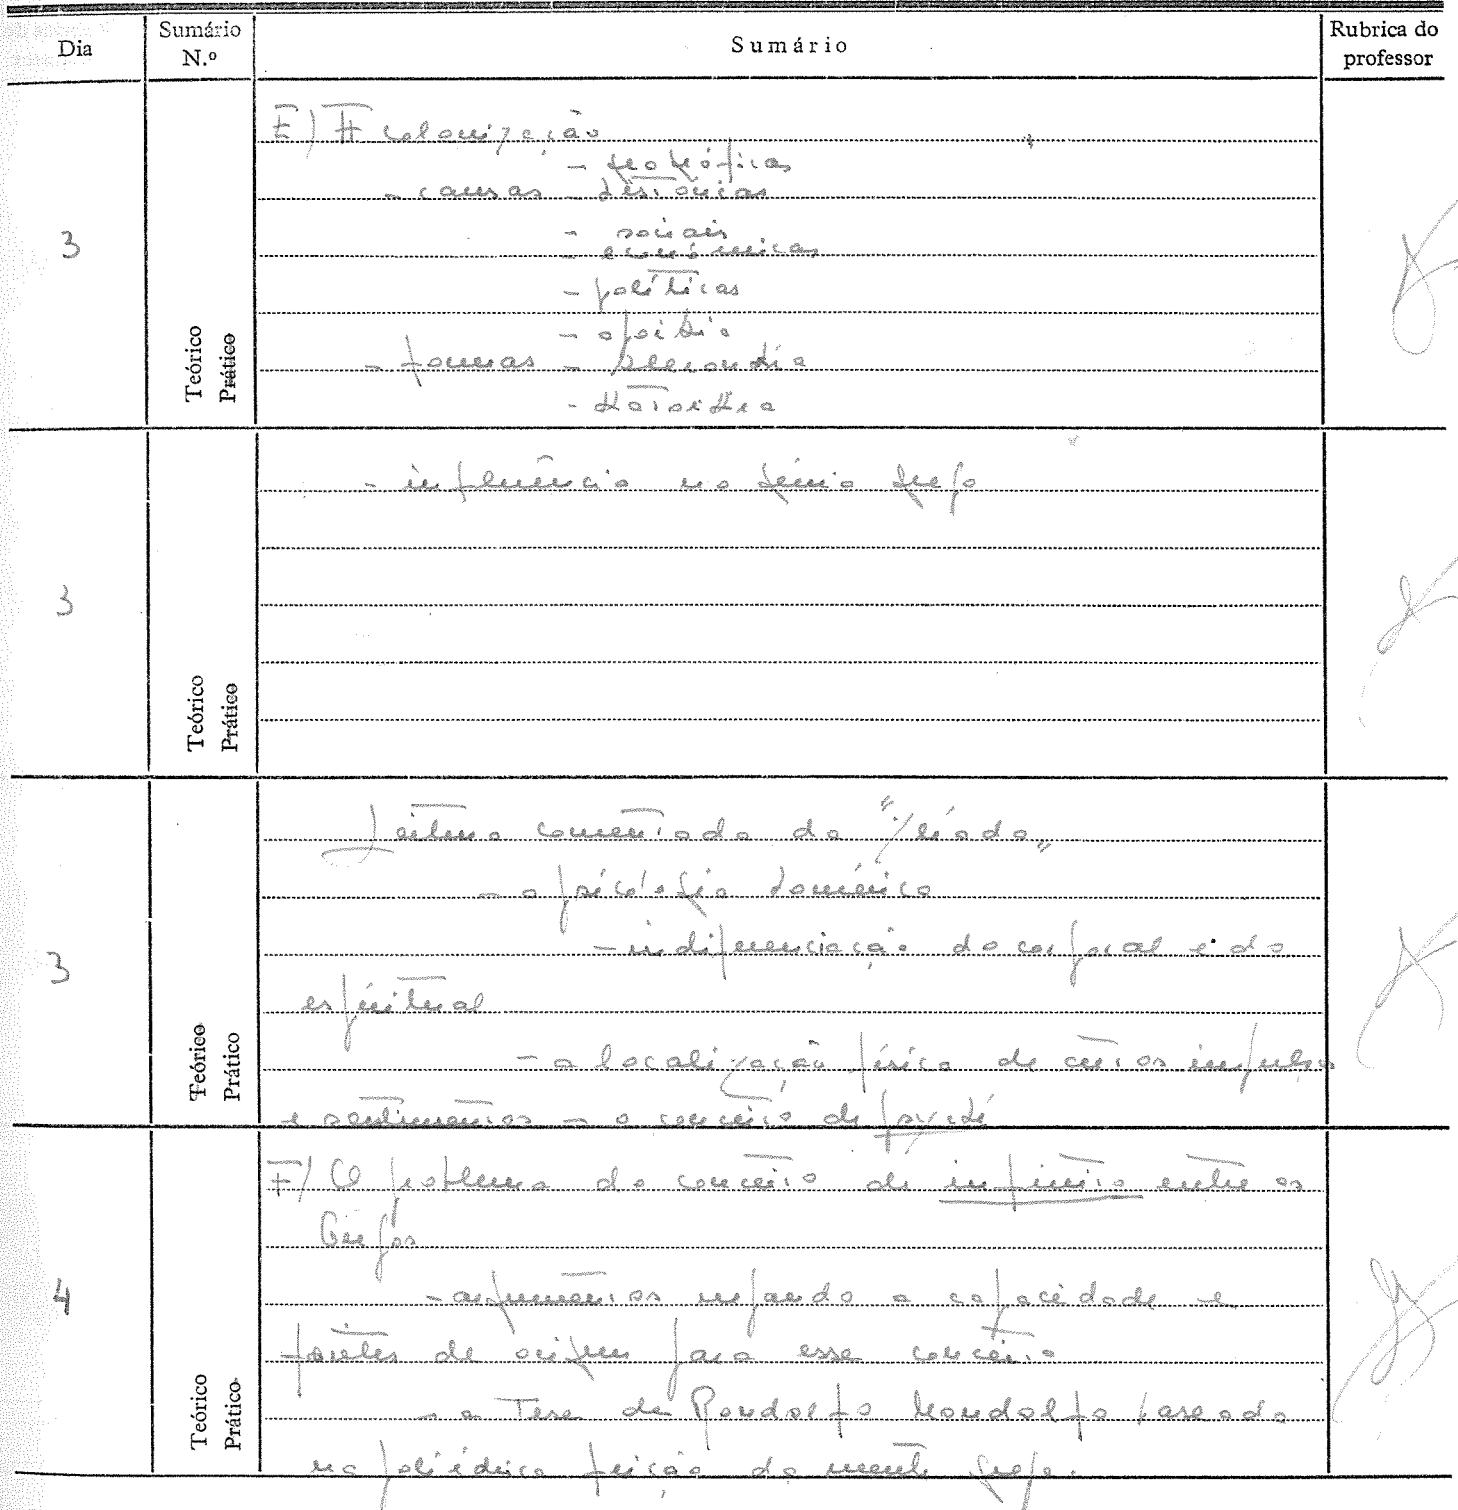 Dia
Sumário N.º
Sumário
Rubrica do professor
3
Teórico
Prático
E) A colonização
- geográficas
- causas - históricas
- sociais
- económicas
- políticas
- apoikia
- formas - klerouchia
3
Teórico
Prático
- influência no génio grego
3
Teórico
Prático
Leitura comentada da "Ilíada"
- a psicologia homérica
- indiferenciação do corporal e do
espiritual
- a localização física de certos impulsos
e sentimentos - o conceito de psyché
4
Teórico
Prático
F) O problema do conceito de infinito entre os
Gregos
- argumentos negando a capacidade e
fontes de origem para esse conceito
- a Tese de Rondolfo Mondolfo baseada
na poliédrica feição da mente grega.